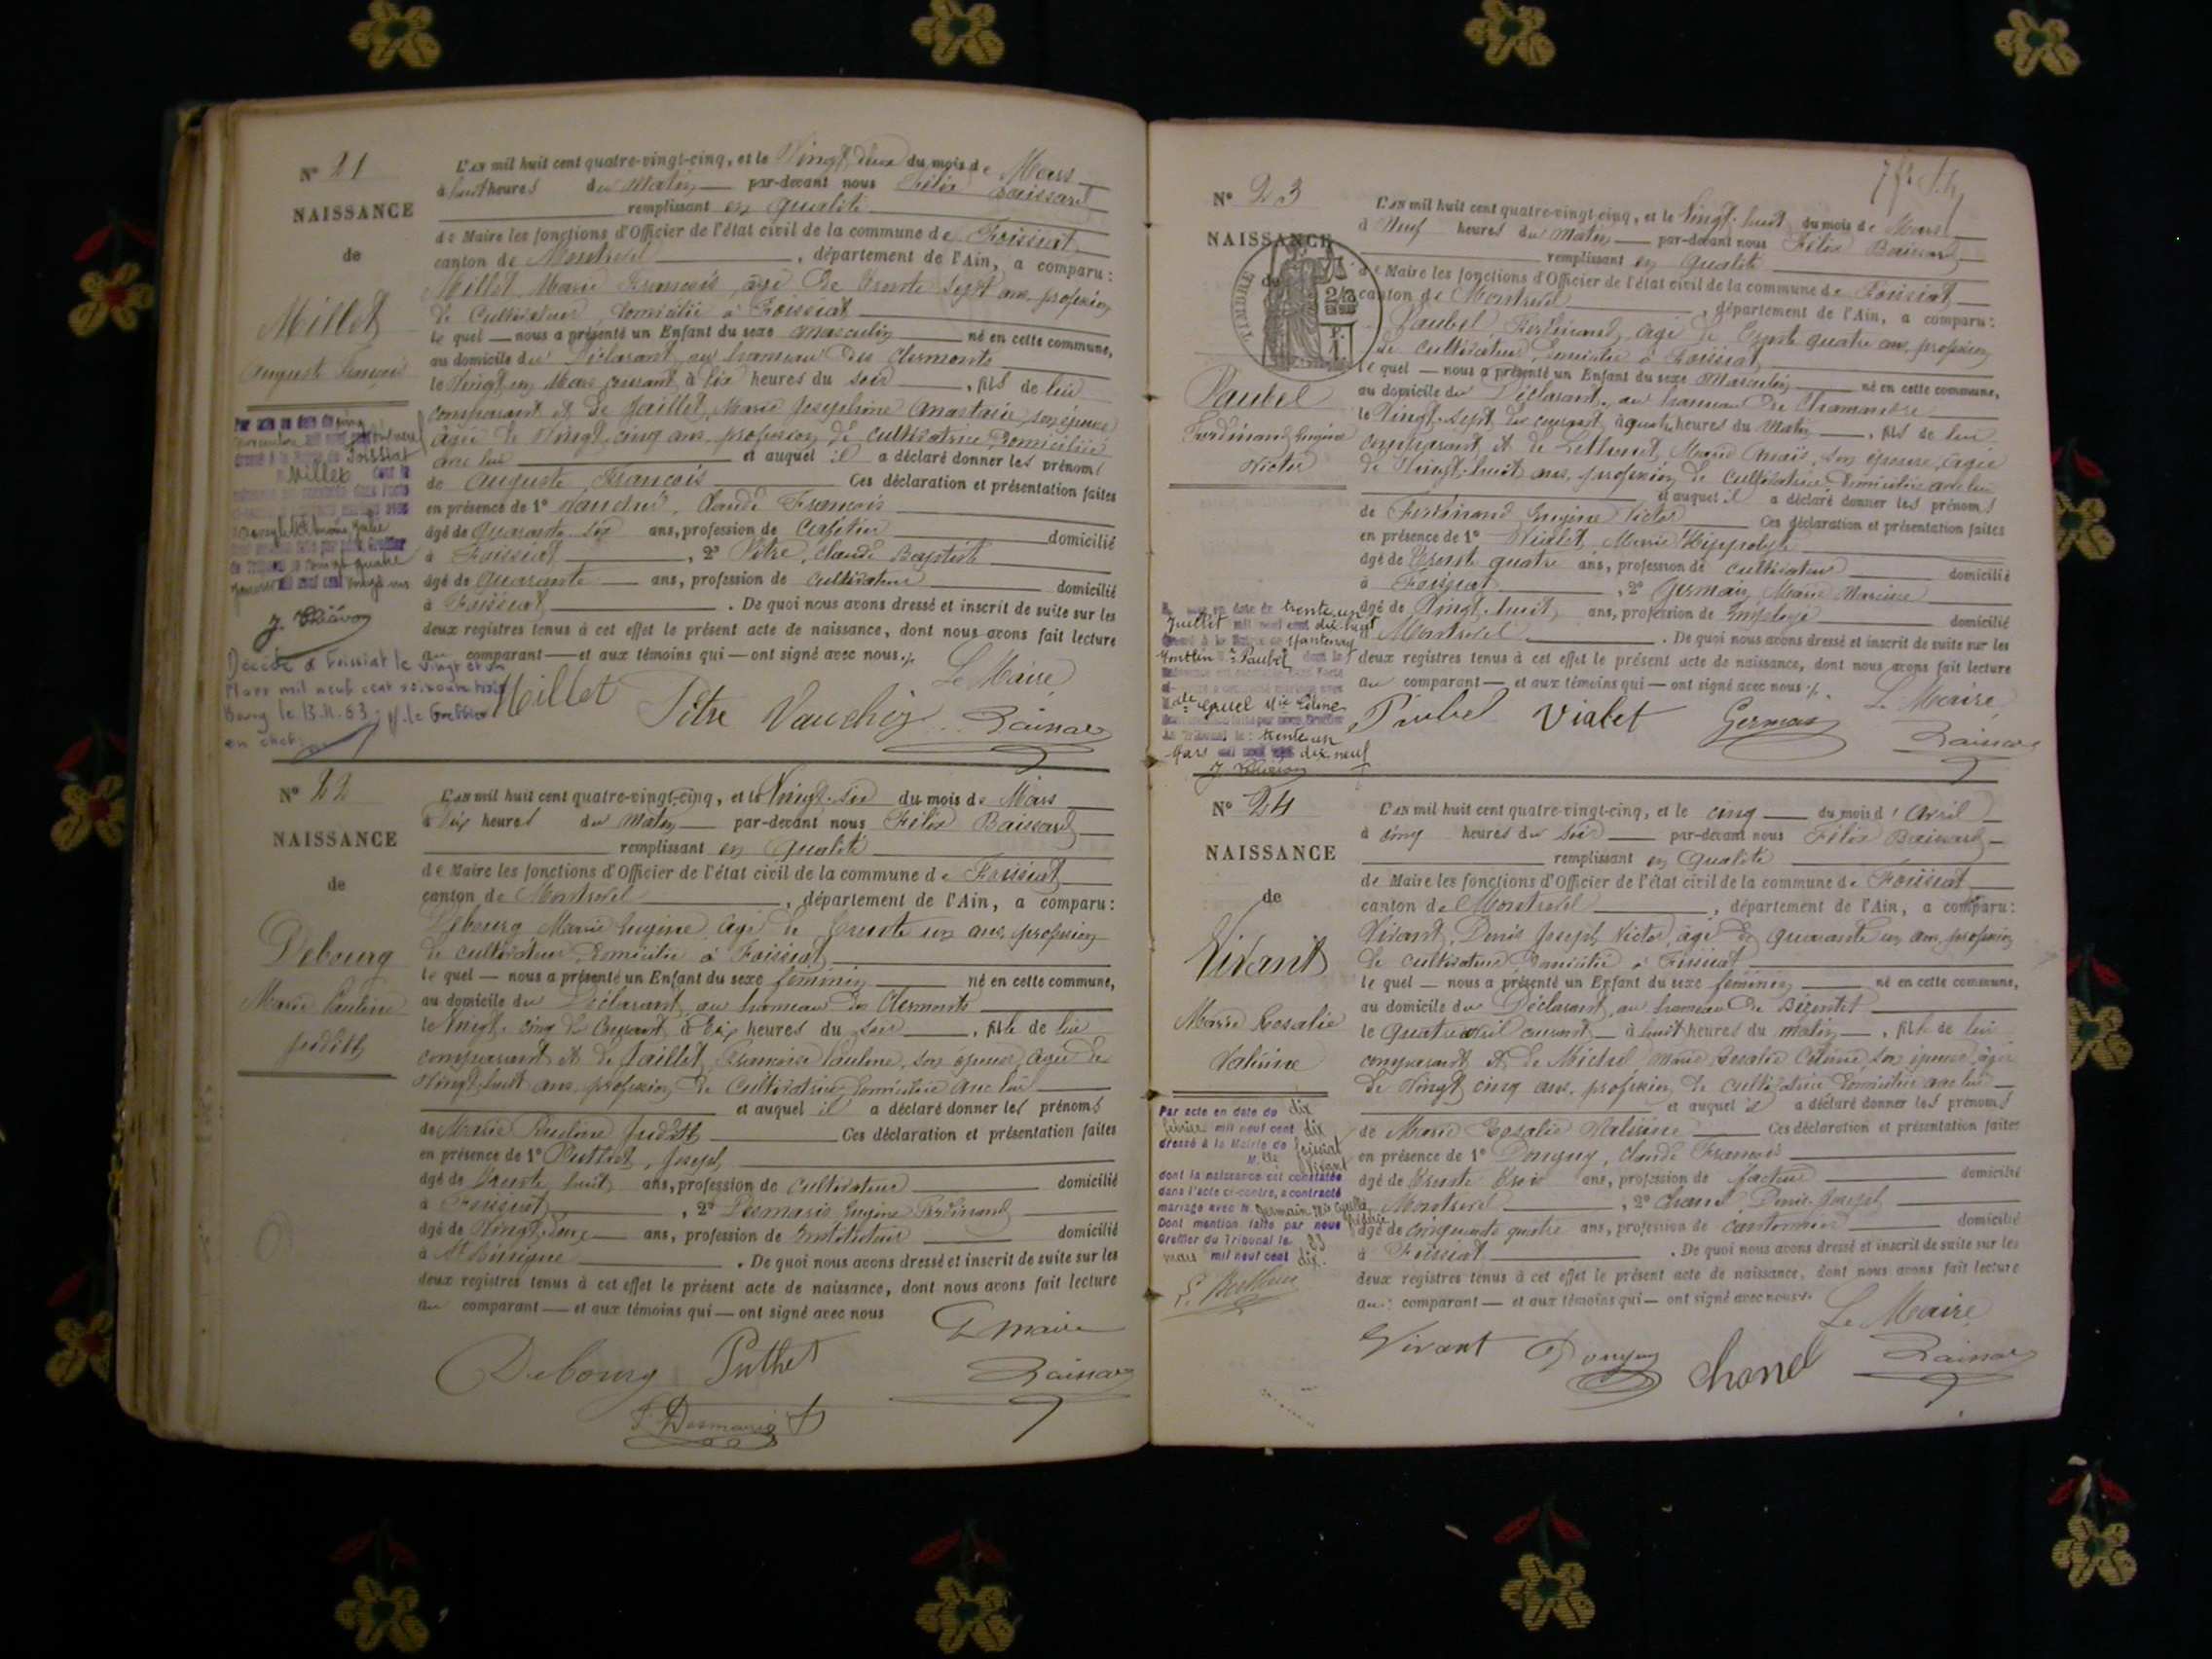 N° 21
NAISSANCE
de
Millet
Auguste François
L'an mil huit cent quatre-vingt-cinq, et le Vingt deux du mois de Mars
à huit heures du Matin par-devant nous Félix
remplissant en qualité
de Maire les fonctions d'Officier de l'état civil de la commune de Foissiat
canton de Montrevel, département de l'Ain, a comparu:
Millet Marie François, âgé de trente sept ans, profession
de Cultivateur, domicilié à Foissiat
le quel — nous a présenté un Enfant du sexe masculin né en cette commune,
au domicile du Déclarant au hameau des Clermonts
le Vingt un Mars courant à six heures du soir, fils de lui
comparant et de Jaillet, Marie Josephine Anastasie, son épouse
âgée de Vingt cinq ans, profession de cultivatrice, domiciliée
avec lui et auquel il a déclaré donner les prénoms
de Auguste François Ces déclaration et présentation faites
en présence de 1° Vaucher, Claude François
âgé de quarante six ans, profession de domicilié
à Foissiat, 2° Pitre, Claude Baptiste
âgé de Quarante ans, profession de Cultivateur domicilié
à Foissiat. De quoi nous avons dressé et inscrit de suite sur les
deux registres tenus à cet effet le présent acte de naissance, dont nous avons fait lecture
au comparant — et aux témoins qui — ont signé avec nous.
Le Maire
Millet Pitre
Par acte en date du cinq
Foissiat
Millet dont la
Décédé à Foissiat le vingt et un
Mars mil neuf cent soixante trois
Bourg le 13.11.63 le Greffier
en chef
N° 22
NAISSANCE
de
Debourg
Marie Pauline
Judith
L'an mil huit cent quatre-vingt-cinq, et le Vingt-six du mois de Mars
à Dix heures du Matin par-devant nous Félix
remplissant en qualité
de Maire les fonctions d'Officier de l'état civil de la commune de Foissiat
canton de Montrevel, département de l'Ain, a comparu:
Debourg Marie Eugène, âgé de trente un ans, profession
de cultivateur domicilié à Foissiat
le quel — nous a présenté un Enfant du sexe féminin né en cette commune,
au domicile du Déclarant au hameau des Clermonts
le Vingt-cinq du courant à dix heures du soir, fille de lui
comparant et de Jaillet, Françoise Pauline, son épouse, âgée de
Vingt-huit ans, profession de Cultivatrice domiciliée avec lui
et auquel il a déclaré donner les prénoms
de Marie Pauline Judith Ces déclaration et présentation faites
en présence de 1° Puthet, Joseph
âgé de trente huit ans, profession de Cultivateur domicilié
à Foissiat, 2° Desmaris Eugène Ferdinand
âgé de Vingt ans, profession de Instituteur domicilié
à St Bénigne. De quoi nous avons dressé et inscrit de suite sur les
deux registres tenus à cet effet le présent acte de naissance, dont nous avons fait lecture
au comparant — et aux témoins qui — ont signé avec nous
Le maire
Debourg Puthet
F. Desmaris
N° 23
NAISSANCE
de
TIMBRE
Paubel
Ferdinand Eugène
Victor
L'an mil huit cent quatre-vingt-cinq, et le Vingt-huit du mois de Mars
à Neuf heures du Matin par-devant nous Félix
remplissant en qualité
de Maire les fonctions d'Officier de l'état civil de la commune de Foissiat
canton de Montrevel, département de l'Ain, a comparu:
Paubel Ferdinand, âgé de trente quatre ans, profession
de cultivateur, domicilié à Foissiat
le quel — nous a présenté un Enfant du sexe Masculin né en cette commune,
au domicile du Déclarant, au hameau de
le Vingt-sept du courant à quatre heures du Matin, fils de lui
comparant et de Marie Anaïs, son épouse, âgée
de Vingt-huit ans, profession de Cultivatrice, domiciliée avec lui
et auquel il a déclaré donner les prénoms
de Ferdinand Eugène Victor Ces déclaration et présentation faites
en présence de 1° Vialet, Marie Hippolyte
âgé de trente quatre ans, profession de cultivateur domicilié
à Foissiat, 2° Germain, Marie
âgé de Vingt-huit ans, profession de Employé domicilié
à Montrevel. De quoi nous avons dressé et inscrit de suite sur les
deux registres tenus à cet effet le présent acte de naissance, dont nous avons fait lecture
au comparant — et aux témoins qui — ont signé avec nous.
Le Maire
Paubel Vialet Germain
trente un
Juillet mil neuf cent dix-huit
Paubel dont la
trente un
Mars mil neuf cent dix neuf
N° 24
NAISSANCE
de
Vivant
Marie Rosalie
L'an mil huit cent quatre-vingt-cinq, et le cinq du mois d'Avril
à cinq heures du soir par-devant nous Félix
remplissant en qualité
de Maire les fonctions d'Officier de l'état civil de la commune de Foissiat
canton de Montrevel, département de l'Ain, a comparu:
Vivant, Denis Joseph Victor, âgé de quarante un ans, profession
de cultivateur domicilié à Foissiat
le quel — nous a présenté un Enfant du sexe féminin né en cette commune,
au domicile du Déclarant, au hameau de
le Quatre avril courant à huit heures du matin, fille de lui
comparant et de Michel Marie Rosalie Céline, son épouse âgée
de Vingt cinq ans, profession de cultivatrice domiciliée avec lui
et auquel il a déclaré donner les prénoms
de Marie Rosalie Ces déclaration et présentation faites
en présence de 1° Donguy, Claude François
âgé de trente trois ans, profession de facteur domicilié
à Montrevel, 2° Chanel, Denis Joseph
âgé de cinquante quatre ans, profession de cantonnier domicilié
à Foissiat. De quoi nous avons dressé et inscrit de suite sur les
deux registres tenus à cet effet le présent acte de naissance, dont nous avons fait lecture
au comparant — et aux témoins qui — ont signé avec nous.
Le Maire
Vivant Donguy Chanel
Par acte en date du dix
février mil neuf cent dix
dressé à la Mairie de Foissiat
M.lle Vivant
dont la naissance est constatée
dans l'acte ci-contre, a contracté
mariage avec M. Germain
Dont mention faite par nous
Greffier du Tribunal le 23
mars mil neuf cent dix.